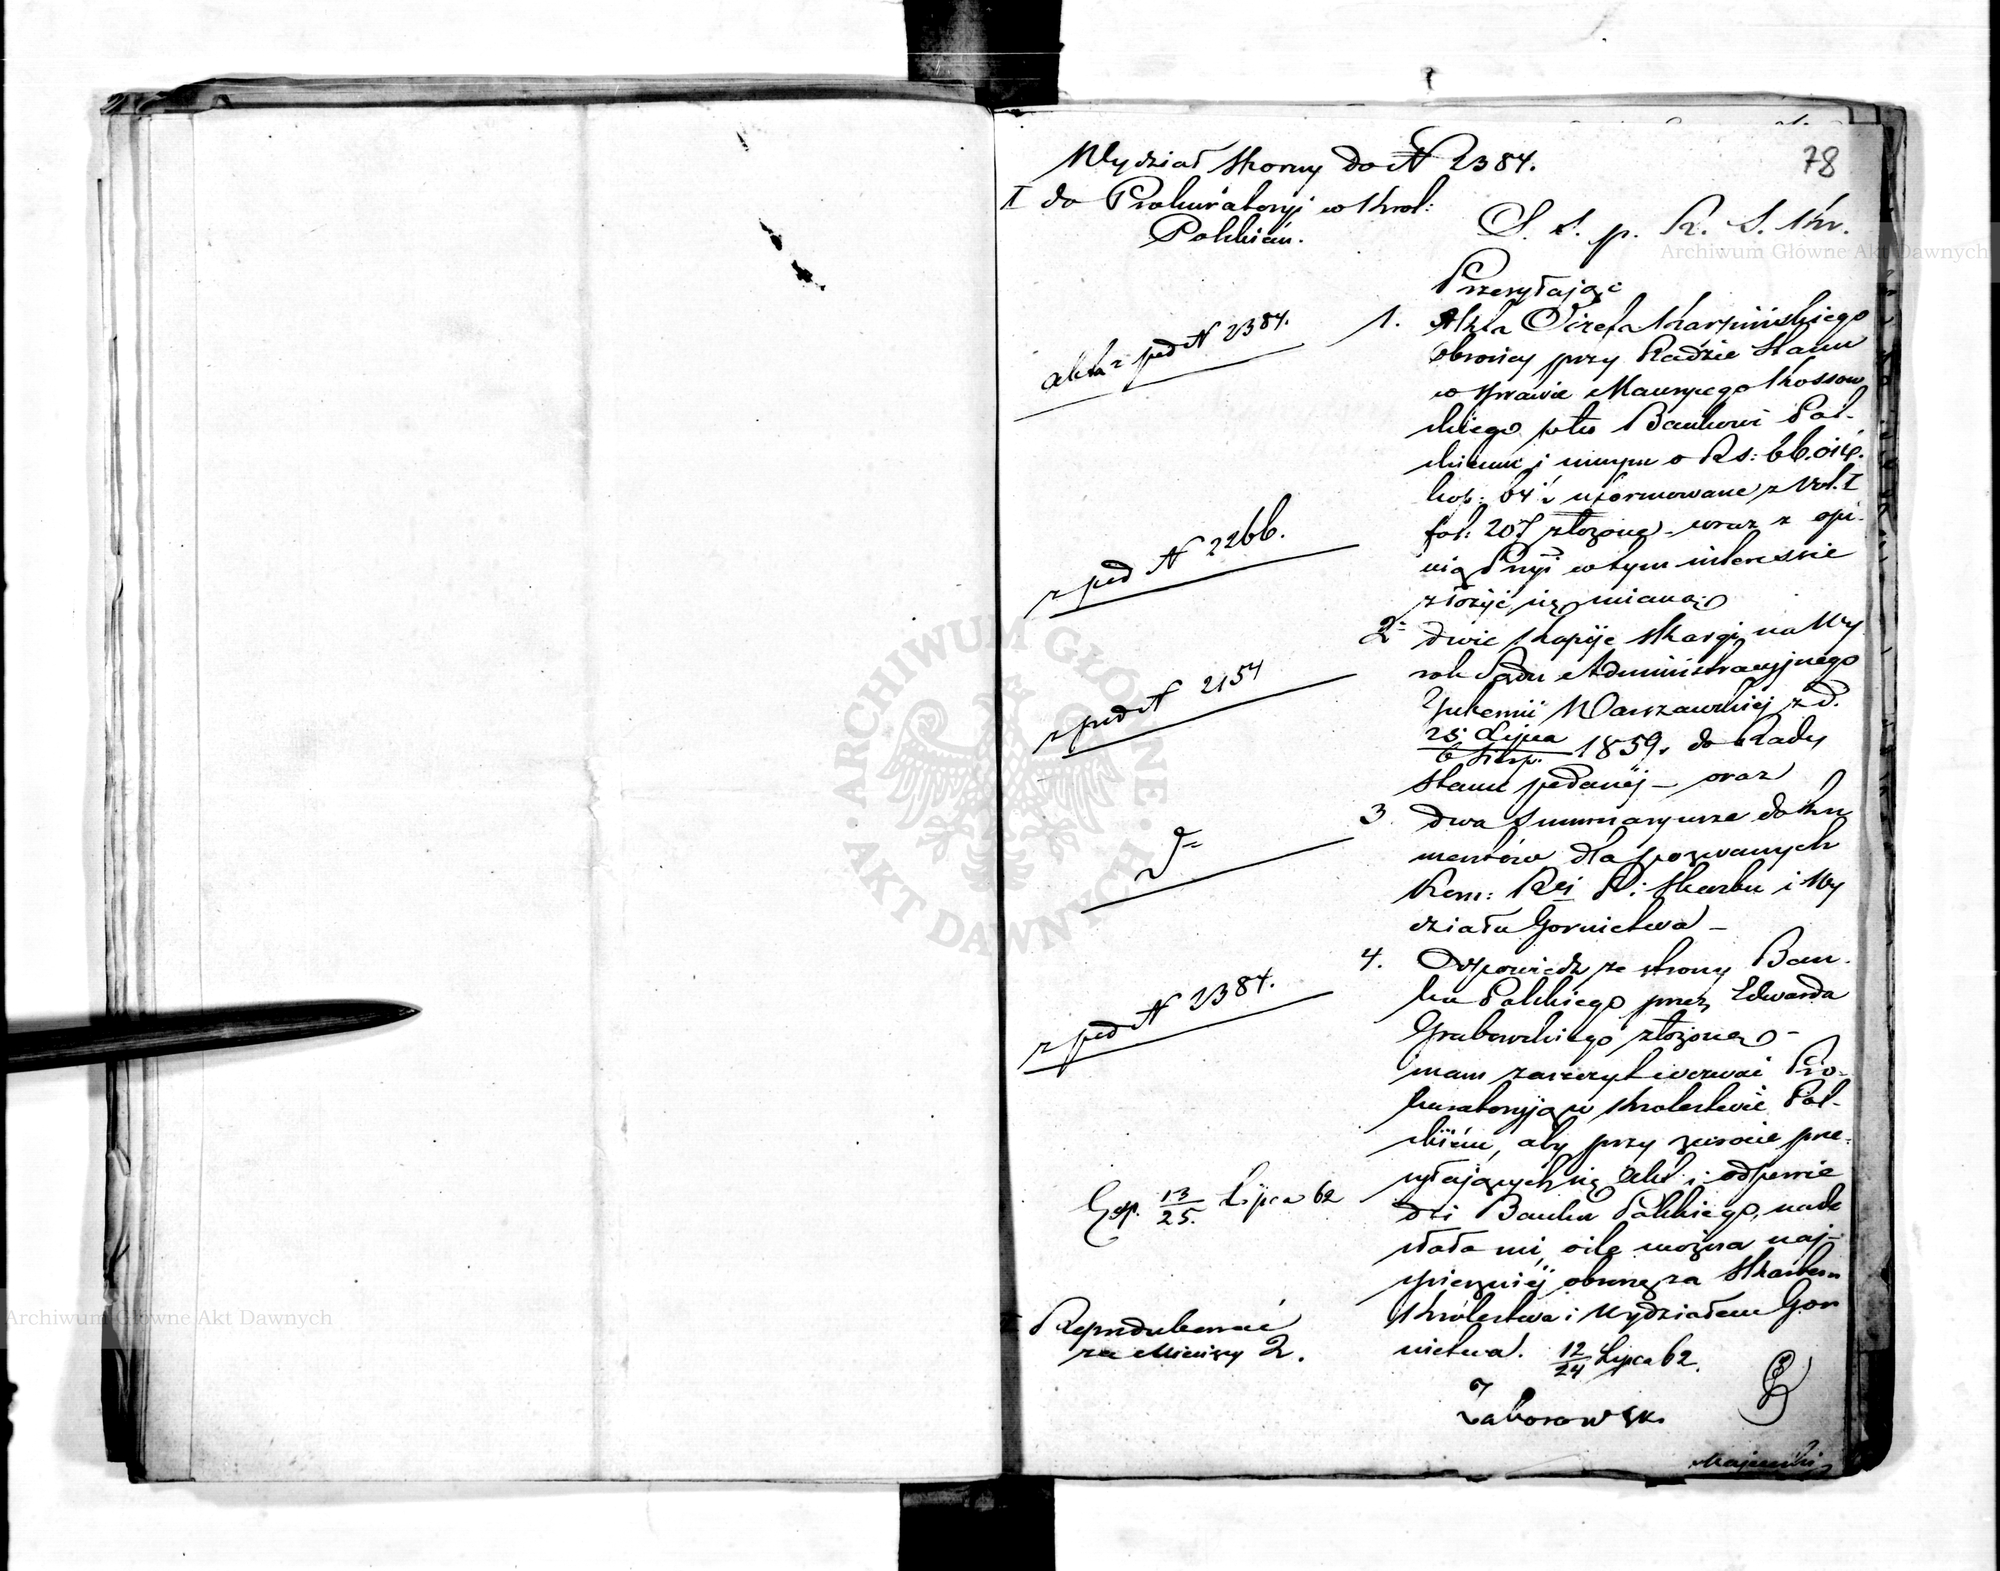 78
Wydział Skarny do N 2384.
I do Prokuratoryi w Król:
Polskiém.
S. s. p. R. S. Kr.
Przesyłając
akta z pod N 2384.
1. Akta Józefa Karpińskiego
obrońcy przy Radzie Stanu
w sprawie Maurycego Kossow
skiego ptko Bankowi Pol-
skiemu i innym o Rs:
kop: 64 i uformowane z Vol. I
fol: 207 złożone wraz z opi-
nią Pryi w tym interessie
złożyć się mianą
z pod N 2266.
2. dwie kopije skargi na Wy
rok Sądu Administracyjnego
Gubernii Warszawskiej z d.
25 Lipca
6 Sierp. 1859 r. do Rady
Stanu podanéj – oraz
z pod N 2154
3. dwa Summaryusze doku
mentów dla pozwanych
Kom: Rej P. i Skarbu i Wy
działu Gornictwa –
4. Odpowiedź ze strony Ban-
ku Polskiego przez Edwarda
Grabowskiego złożoną –
z pod N 2384.
mam zaszczyt wezwać Pro-
kuratoryją w Królestwie Pol-
skiém, aby przy zwrocie prze-
syłających się akt i odpowie
dzi Banku Polskiego, nade
słała mi, o ile można naj-
śpieszniéj obronę za Skarbem
Królestwa i Wydziałem Gor
nictwa. 12/24 Lipca 62.
Exp. 13/25. Lipca 62
Reprodukować
za Miesięcy 2.
Zaborowski
Majewski
ARCHIWUM GŁÓWNE AKT DAWNYCH
Archiwum Główne Akt Dawnych
Archiwum Główne Akt Dawnych